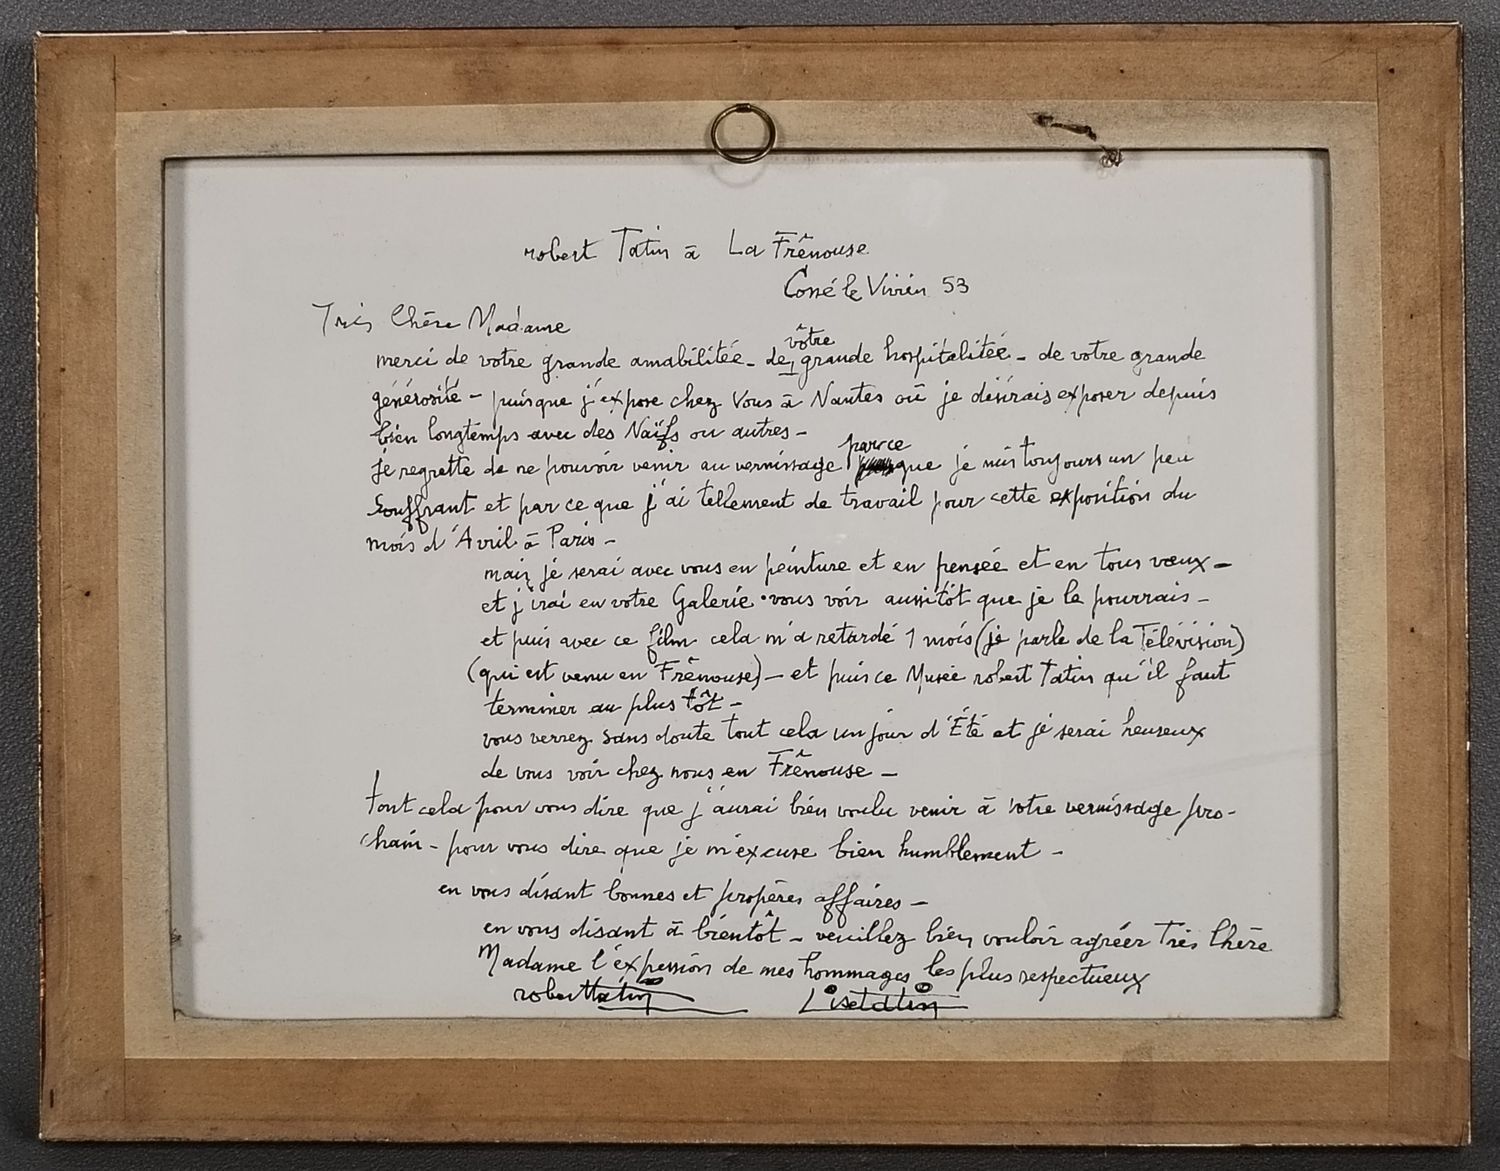 robert Tatin à La Frênouse
Cossé le Vivien 53
Très Chère Madame
merci de votre grande amabilitée - de vôtre grande hospitalitée - de votre grande
générosité - puisque j'expose chez Vous à Nantes où je désirais exposer depuis
bien longtemps avec des Naïfs ou autres -
je regrette de ne pouvoir venir au vernissage parce que je suis toujours un peu
souffrant et par ce que j'ai tellement de travail pour cette exposition du
mois d'Avril à Paris -
mais je serai avec vous en peinture et en pensée et en tous vœux -
et j'irai en votre Galerie vous voir aussitôt que je le pourrais -
et puis avec ce film cela m'a retardé 1 mois (je parle de la Télévision)
(qui est venu en Frênouse) - et puis ce Musée robert Tatin qu'il faut
terminer au plus tôt -
vous verrez sans doute tout cela un jour d'Été et je serai heureux
de vous voir chez nous en Frênouse -
tout cela pour vous dire que j'aurai bien voulu venir à votre vernissage pro-
chain - pour vous dire que je m'excuse bien humblement -
en vous disant bonnes et propères affaires -
en vous disant à bientôt - veuillez bien vouloir agréer Très Chère
Madame l'expession de mes hommages les plus respectueux
robert tatin Lise tatin